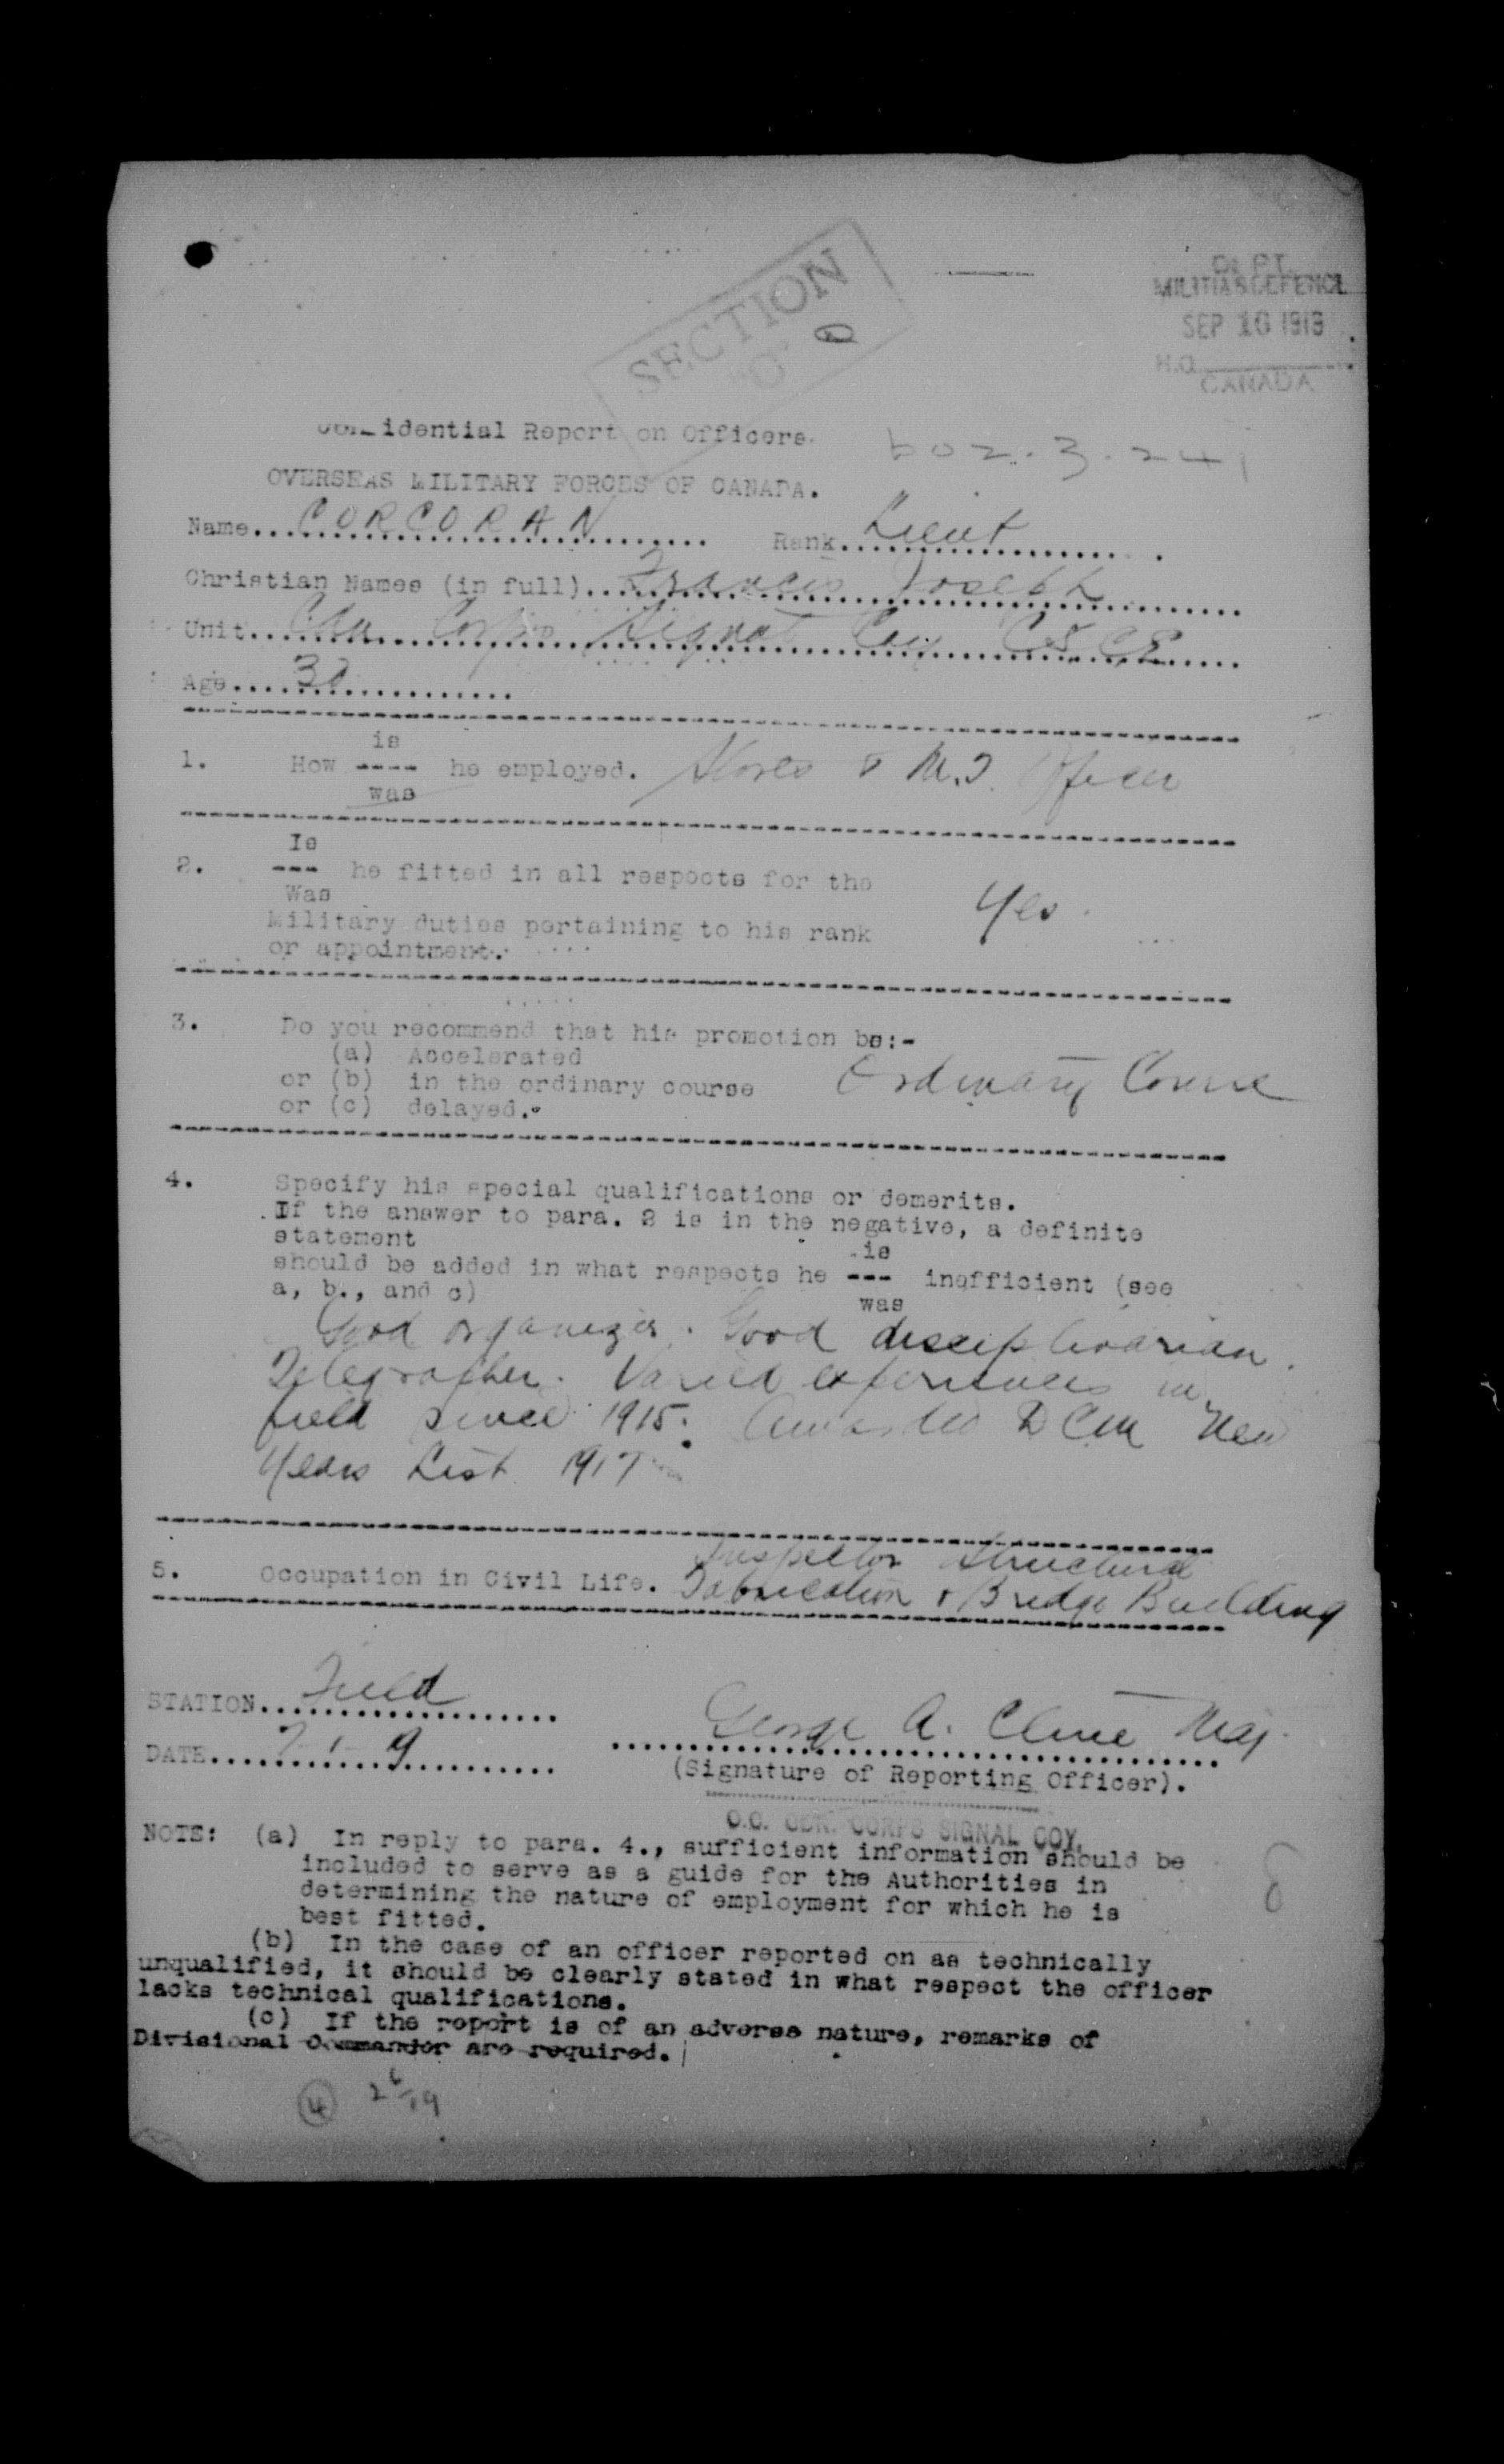 SECTION
"O"
DEPT.
MILITIA & DEFENCE
SEP 10 1919
H.Q.
CANADA
Confidential Report on Officers.
602.3.241
OVERSEAS MILITARY FORCES OF CANADA.
Name... CORCORAN Rank... Lieut
Christian Names (in full)... Francis Joseph
Unit... Can Corps Signal Coy
Age...
is
1. How ---- he employed. Stores & M.T. Officer
was
Is
2. --- he fitted in all respects for the
Was
Yes.
Military duties pertaining to his rank
or appointment.
3. Do you recommend that his promotion be:-
(a) Accelerated
or (b) in the ordinary course Ordinary Course
or (c) delayed.
4. Specify his special qualifications or demerits.
If the answer to para. 2 is in the negative, a definite
statement
is
should be added in what respects he --- inefficient (see
a, b., and c)
was
Good organizer. Good disciplinarian.
Telegrapher. Varied experiences in
field since 1915. Awarded DCM New
Years List 1917
Inspector Structural
5. Occupation in Civil Life. Fabrication & Bridge Building
STATION... Field
George A. Cline Maj.
DATE...
(Signature of Reporting Officer).
O.C. CDN. CORPS SIGNAL COY.
NOTE: (a) In reply to para. 4., sufficient information should be
included to serve as a guide for the Authorities in
determining the nature of employment for which he is
best fitted.
(b) In the case of an officer reported on as technically
unqualified, it should be clearly stated in what respect the officer
lacks technical qualifications.
(c) If the report is of an adverse nature, remarks of
Divisional Commander are required.
4
8